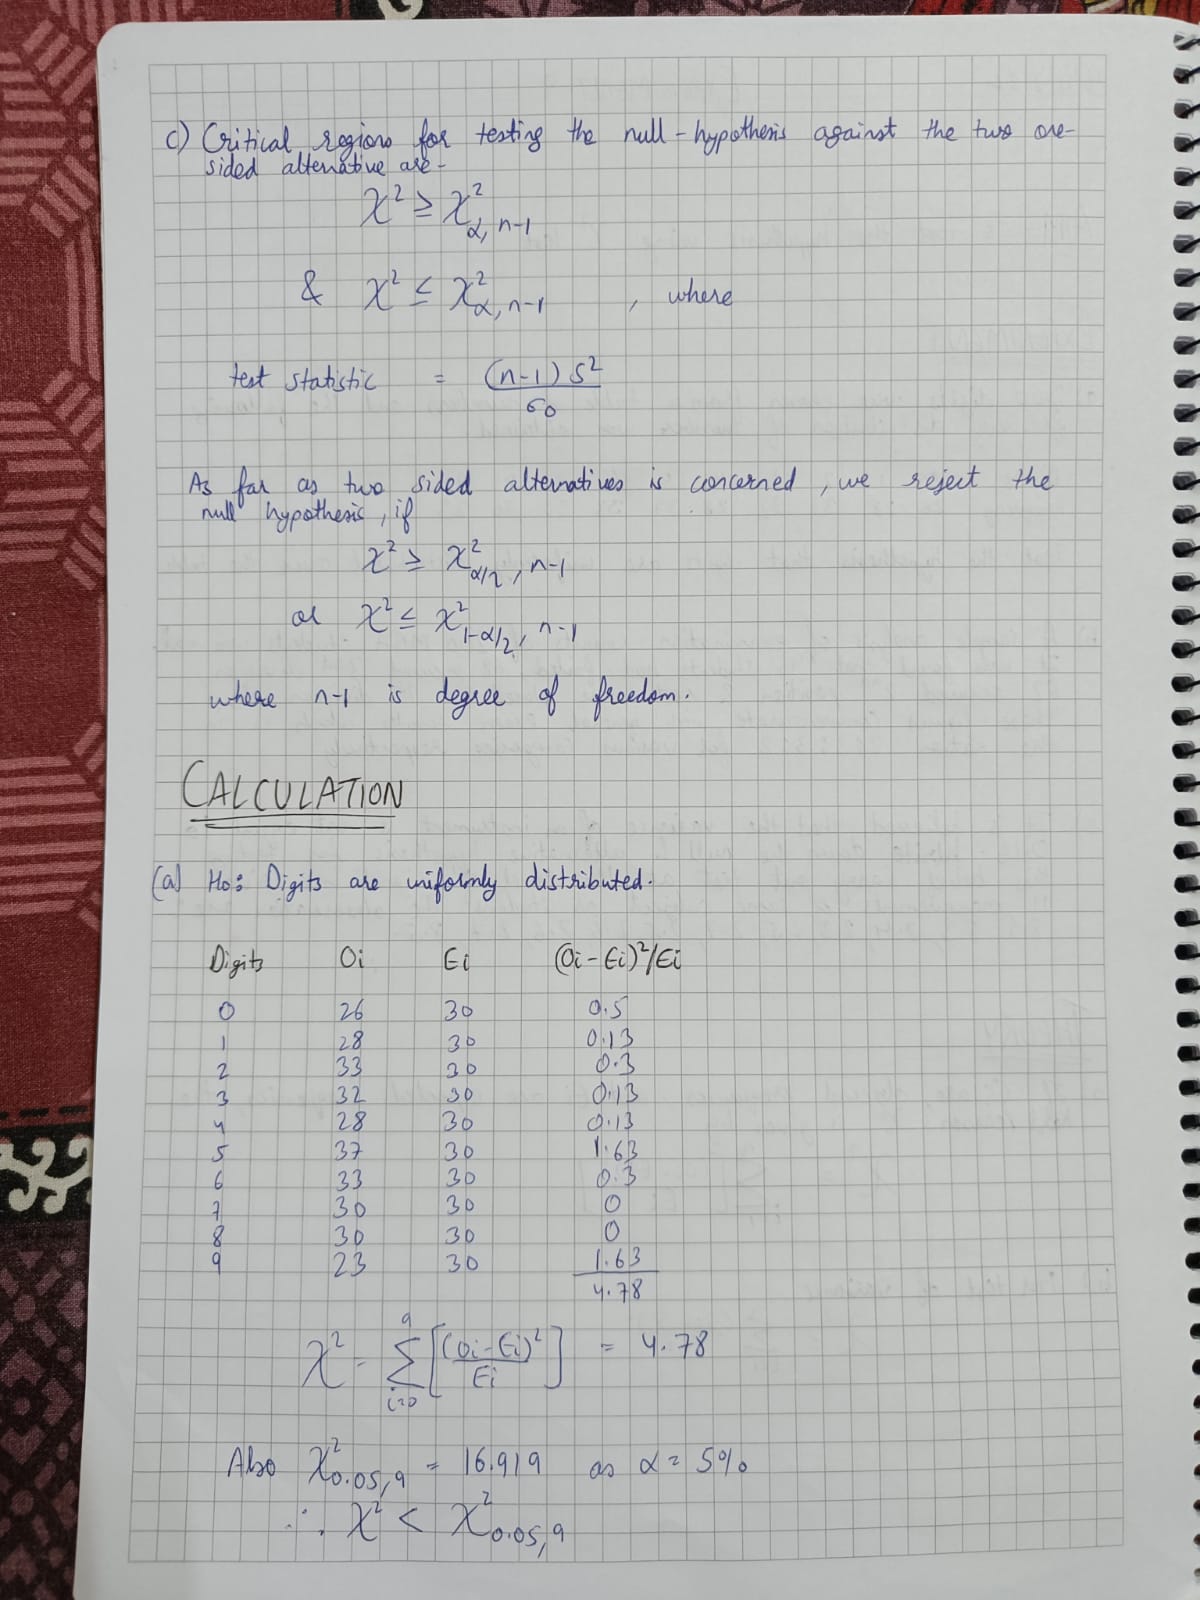 c) Critical regions for testing the null-hypothesis against the two one-
sided alternative are-
χ² ≥ χ²α, n-1
& χ² ≤ χ²α, n-1 , where
test statistic = (n-1) S² / σ0
As far as two sided alternatives is concerned, we reject the
null hypothesis, if
χ² ≥ χ²α/2, n-1
or χ² ≤ χ²1-α/2, n-1
where n-1 is degree of freedom.
CALCULATION
(a) Ho: Digits are uniformly distributed.
Digits Oi Ei (Oi-Ei)²/Ei
0 26 30 0.5
1 28 30 0.13
2 33 30 0.3
3 32 30 0.13
4 28 30 0.13
5 37 30 1.63
6 33 30 0.3
7 30 30 0
8 30 30 0
9 23 30 1.63
4.78
χ² = 9Σi=0 [(Oi-Ei)²/Ei] = 4.78
Also χ²0.05,9 = 16.919 as α = 5%
∴ χ² < χ²0.05,9